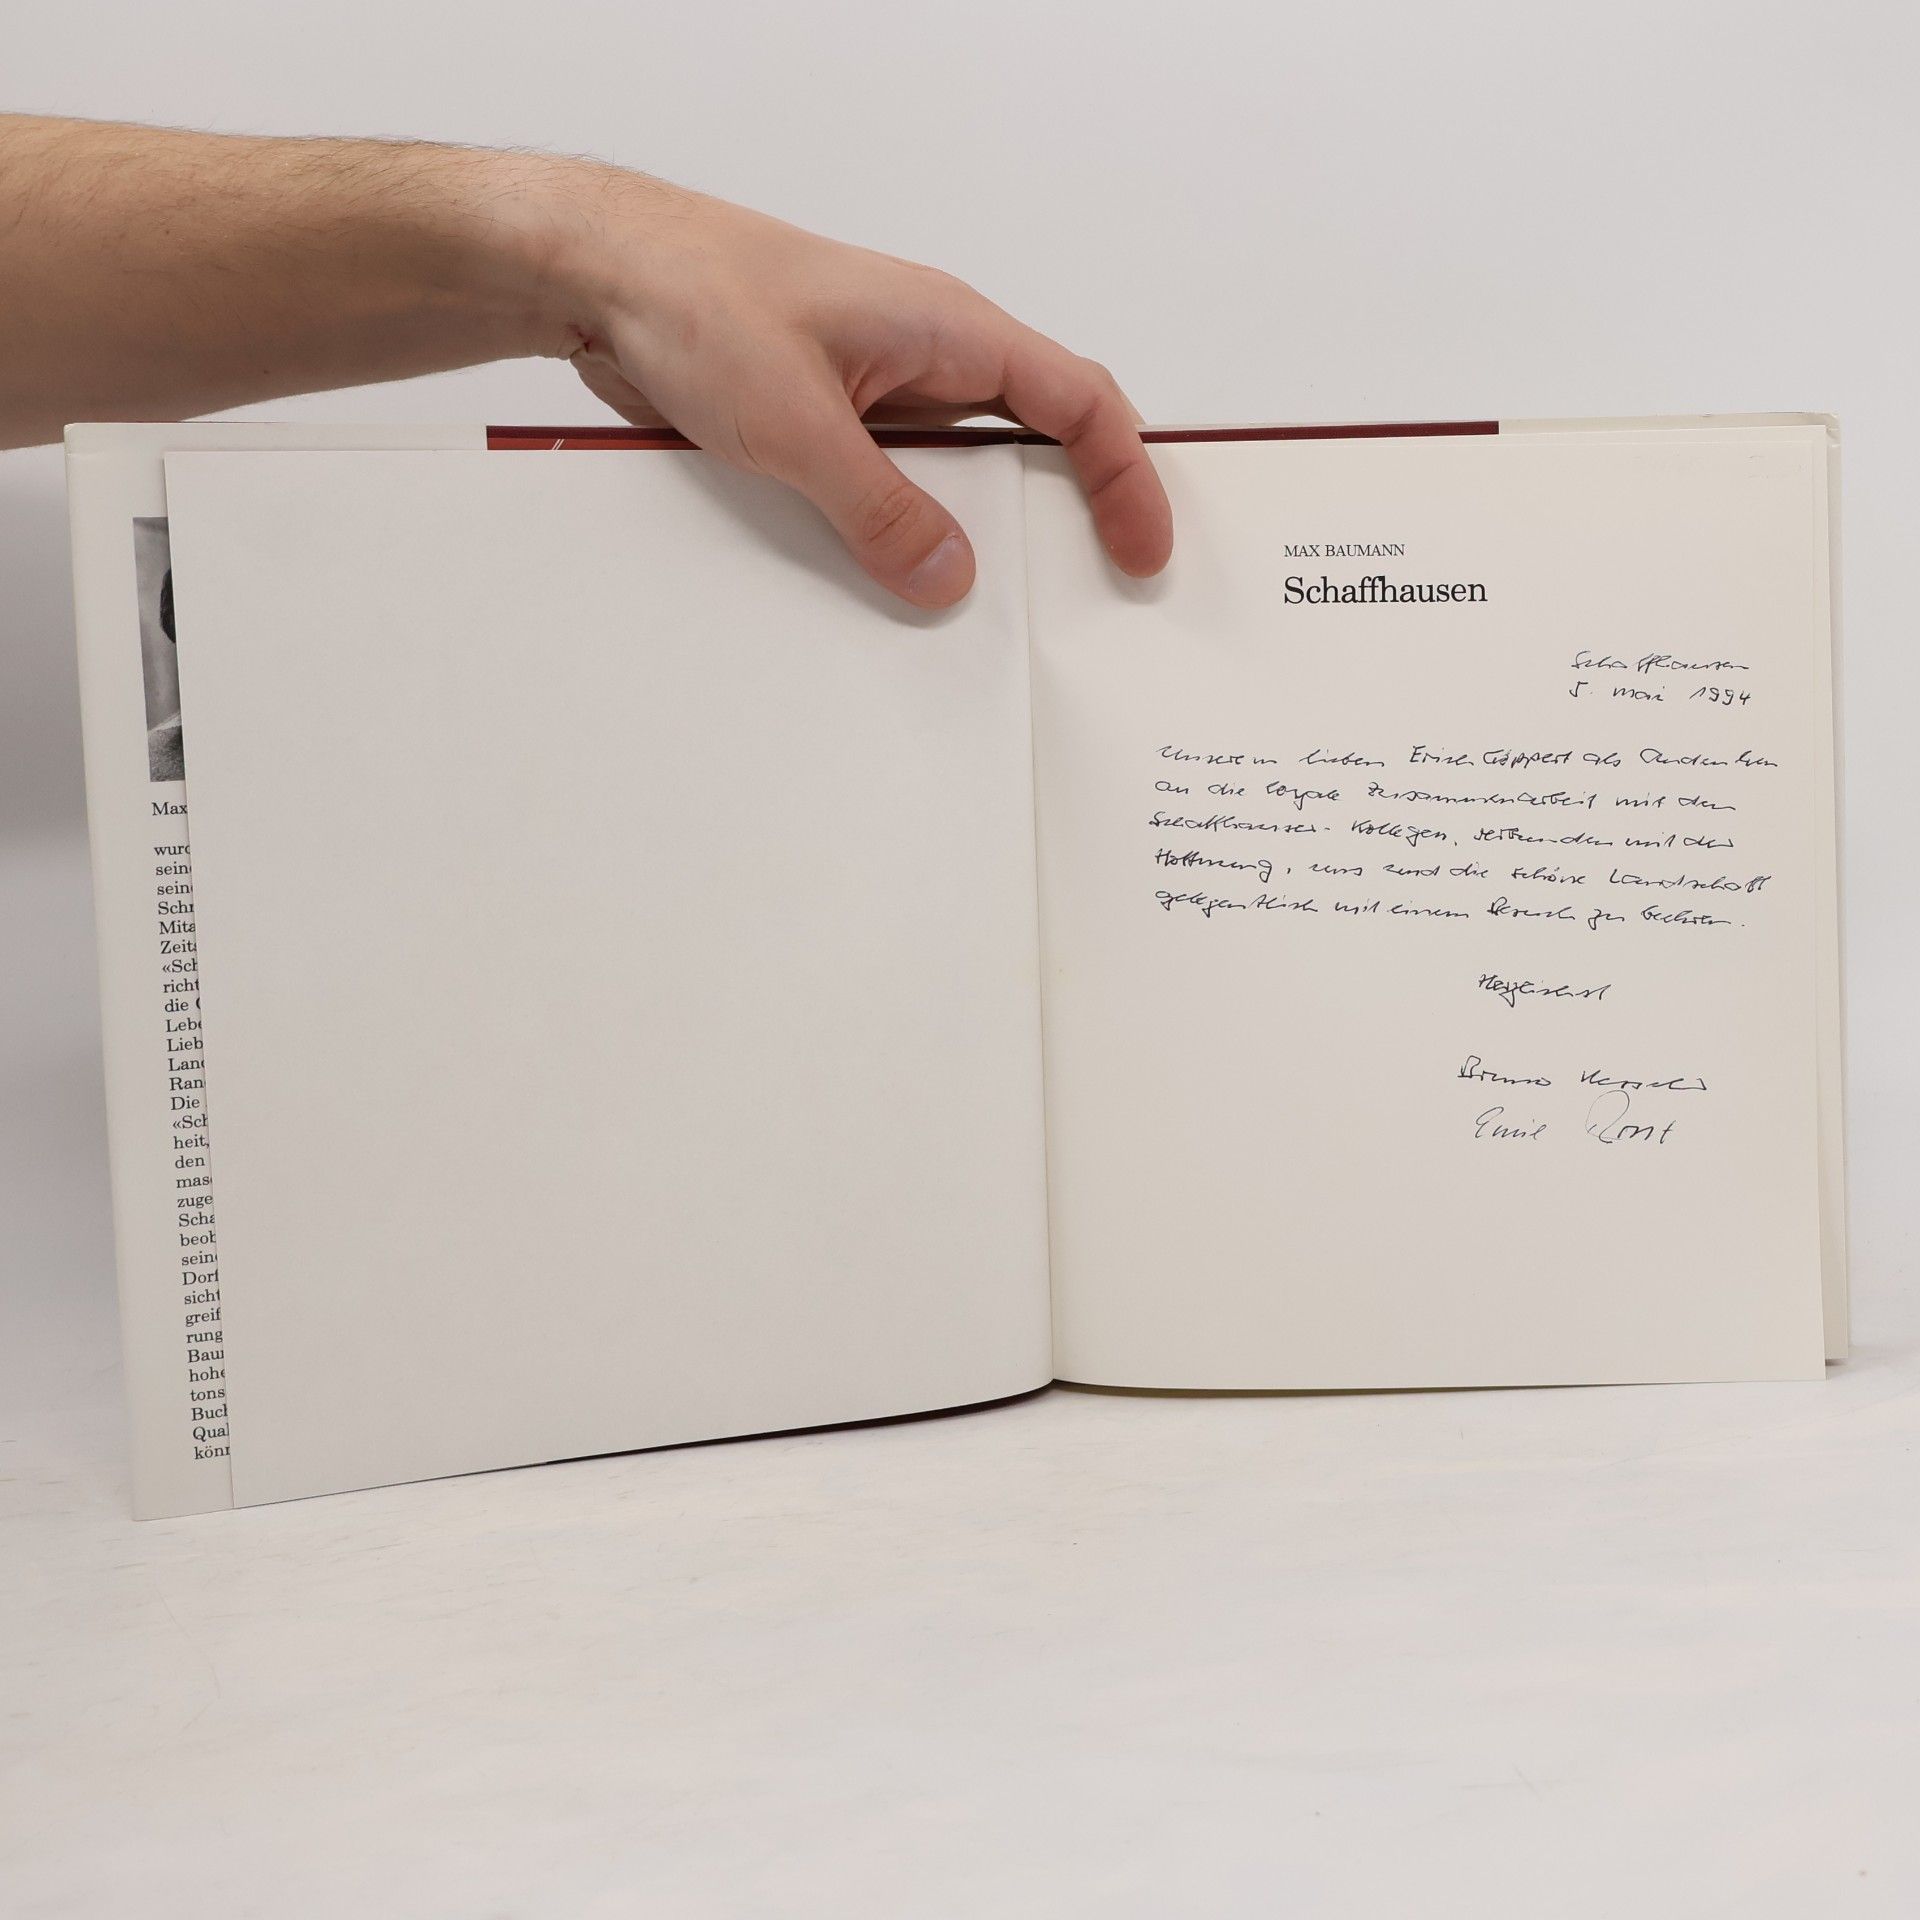 Max
wurd
sein
sein
Schr
Mita
Zeits
«Sch
richt
die G
Lebe
Lieb
Land
Ran
Die
«Sch
heit,
den
mas
zuge
Scha
beob
sein
Dorf
sicht
greif
rung
Bau
hohe
tons
Buch
Qual
könn
MAX BAUMANN
Schaffhausen
Schaffhausen
5. Mai 1994
Unserem lieben Erich Göppert als Andenken
an die loyale Zusammenarbeit mit den
Schaffhauser-Kollegen, verbunden mit der
Hoffnung, uns und die schöne Landschaft
gelegentlich mit einem Besuch zu beehren.
Herzlichst
Bruno
Emil